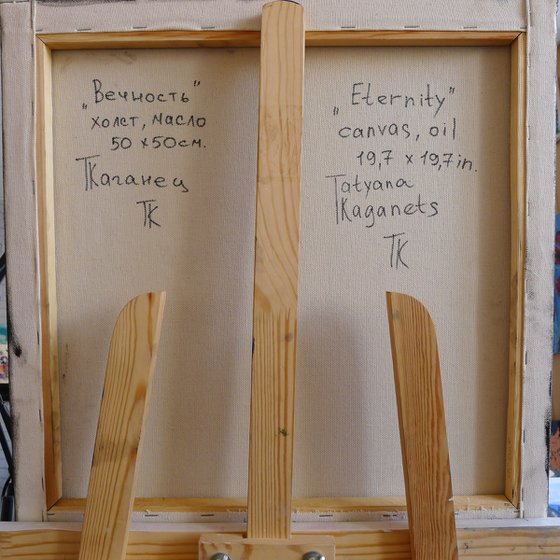 „Вечность"
холст, масло
50 x 50 см.
ТКаганец
ТК
„Eternity"
canvas, oil
19,7 x 19,7 in.
Tatyana
Kaganets
TK